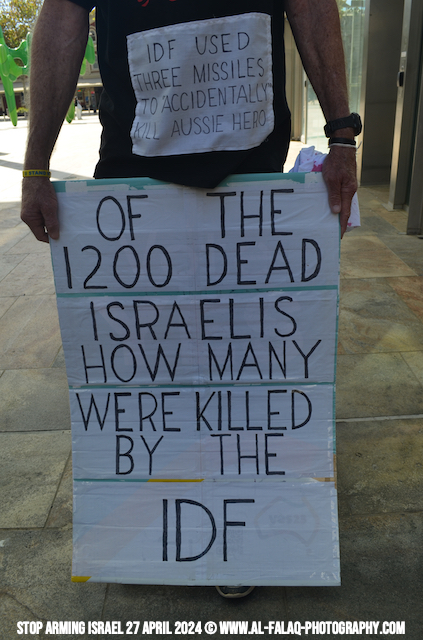 IDF USED
THREE MISSILES
TO "ACCIDENTALLY"
KILL AUSSIE HERO
OF THE
1200 DEAD
ISRAELIS
HOW MANY
WERE KILLED
BY THE
IDF
STOP ARMING ISRAEL 27 APRIL 2024 © WWW.AL-FALAQ-PHOTOGRAPHY.COM